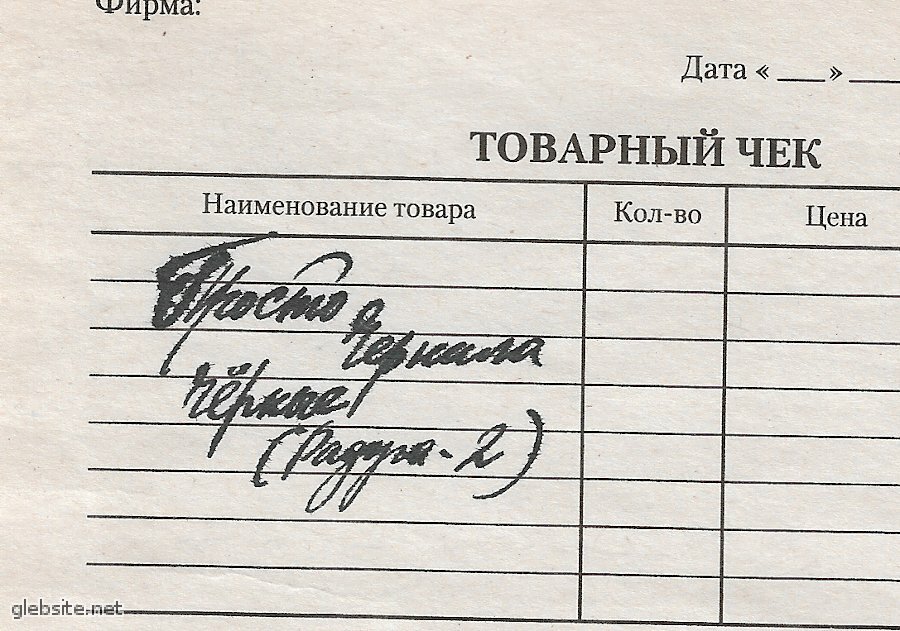 Фирма:
Дата «___» ___
ТОВАРНЫЙ ЧЕК
Наименование товара Кол-во Цена
Просто
Чернила
Чёрные
(Радуга-2)
glebsite.net